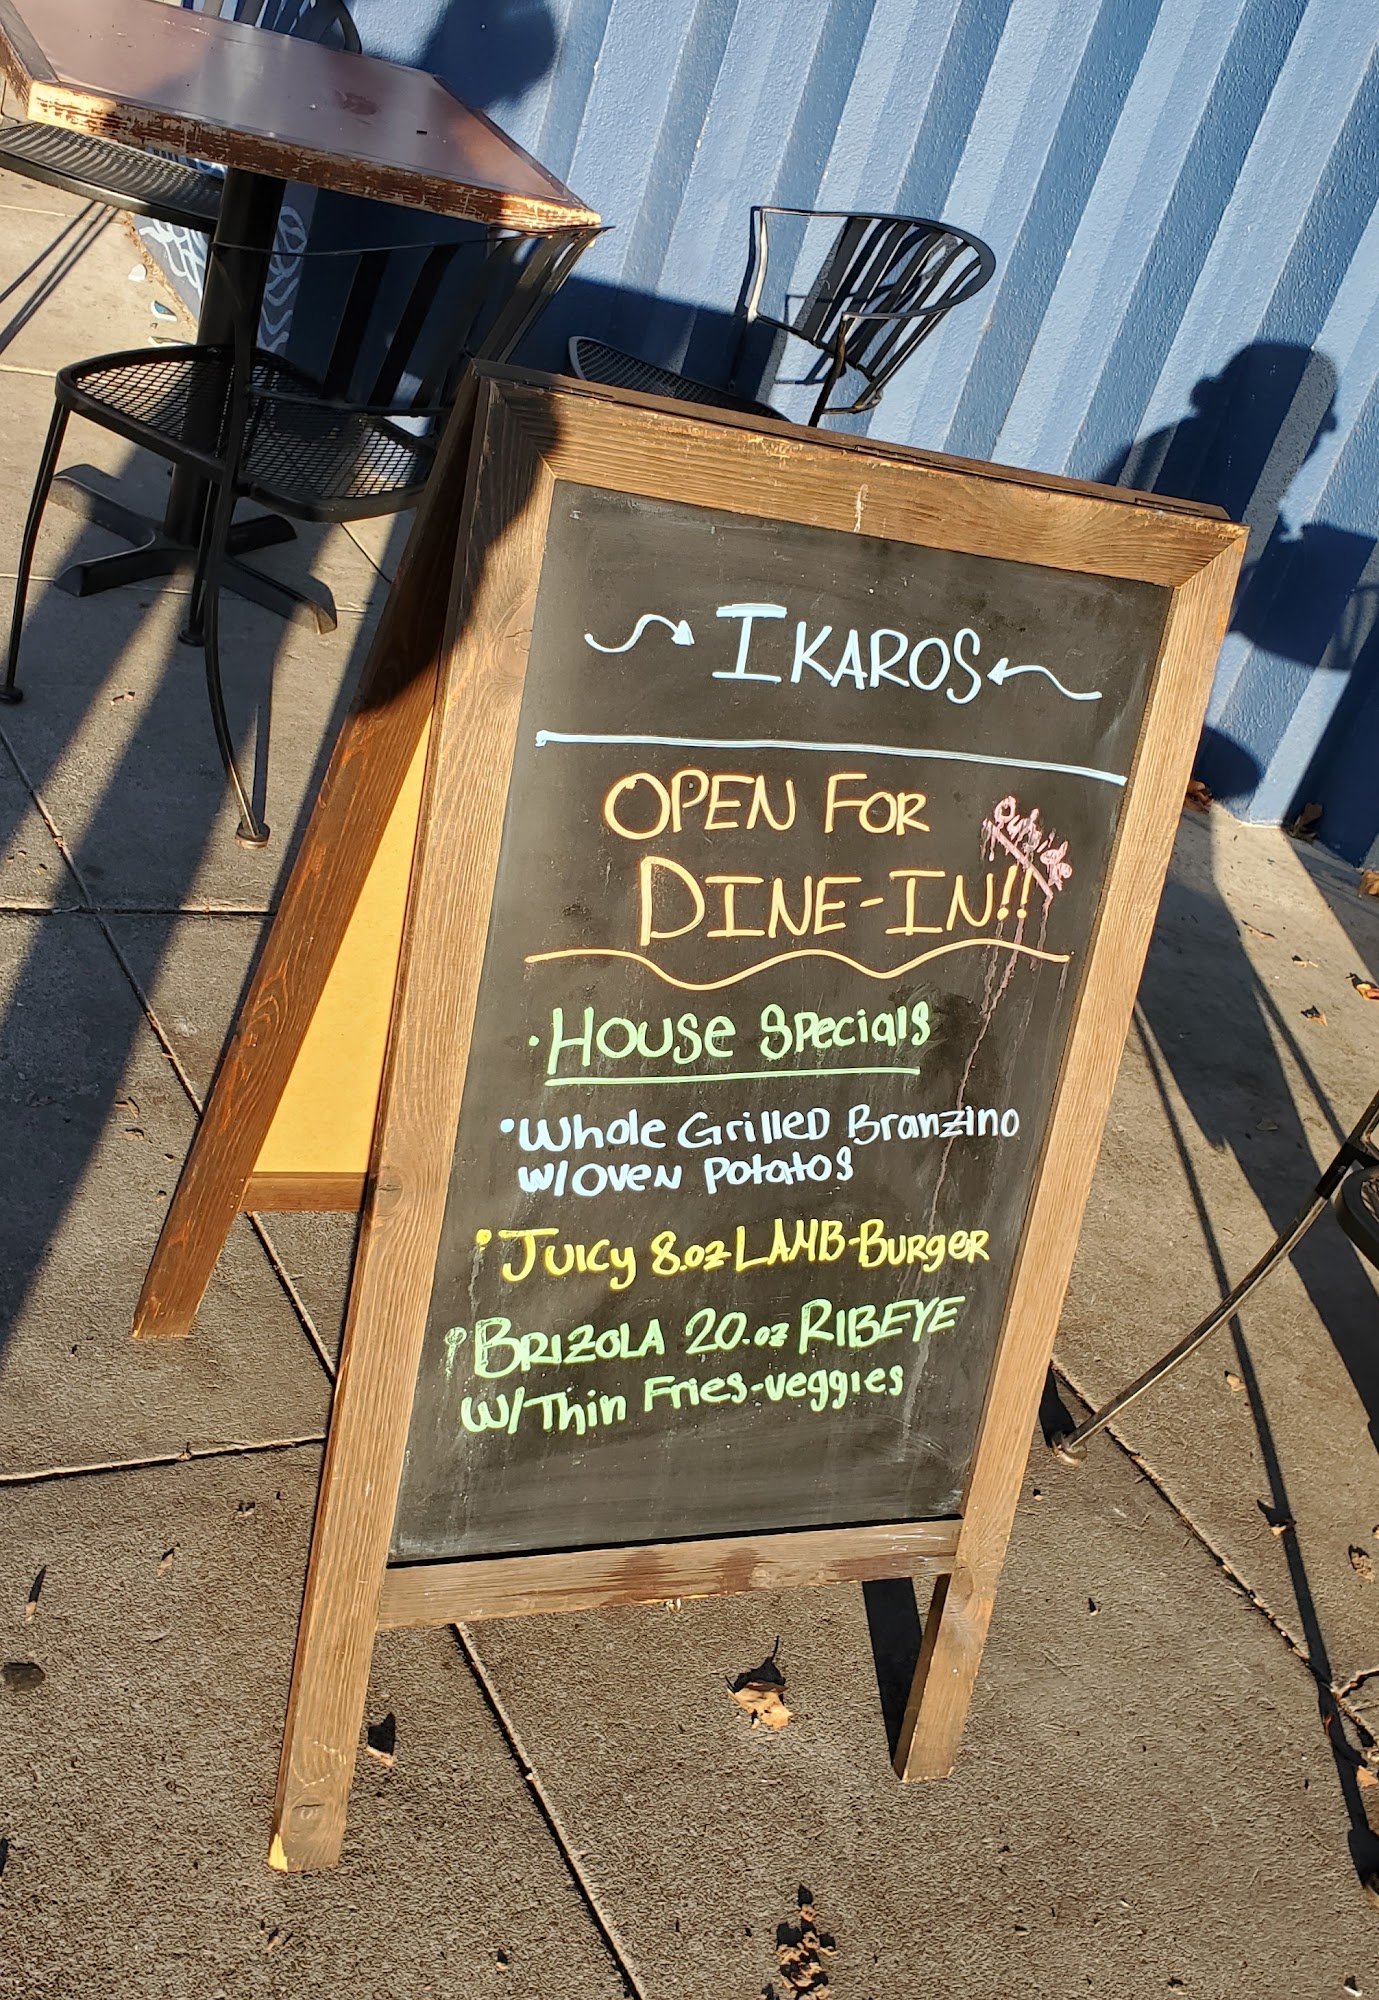 IKAROS
OPEN FOR
DINE-IN!!
Outside
· HOUSE SPECIALS
• Whole GrillED Branzino
W/OVEN POTATOS
• JUICY 8.oz LAMB-BurgeR
• BRIZOLA 20.oz RIBEYE
W/Thin Fries-veggies